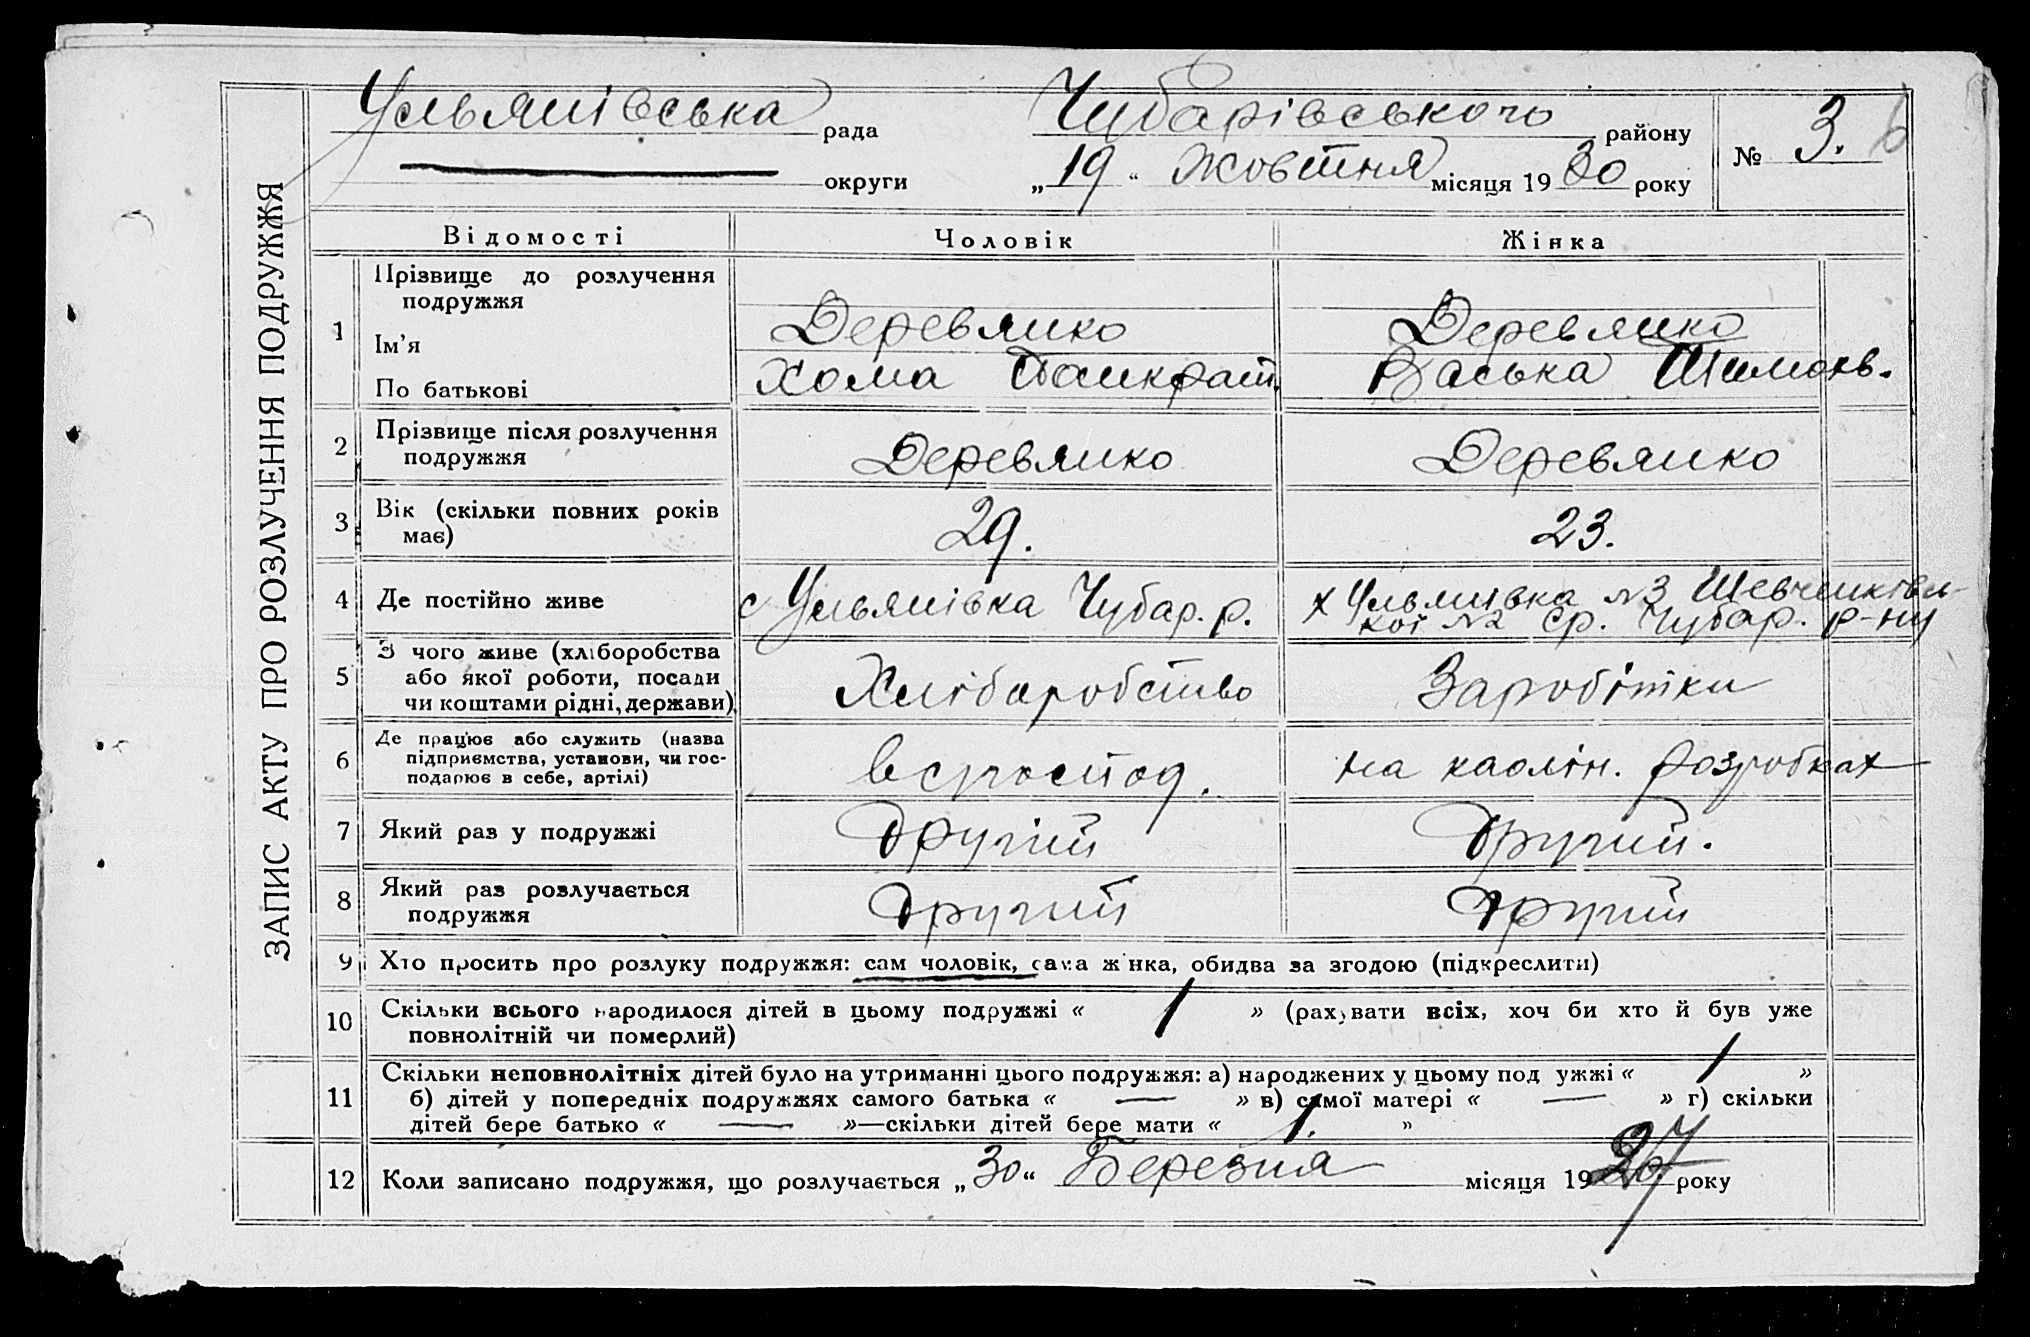 ЗАПИС АКТУ ПРО РОЗЛУЧЕННЯ ПОДРУЖЖЯ
Ульянівська рада Чубарівського району № 3.
округи „19“ жовтня місяця 1930 року
Відомості Чоловік Жінка
1 Прізвище до розлучення подружжя Деревянко Деревянко
Ім'я
По батькові Хома Панкрат. Васька Шимонв.
2 Прізвище після розлучення подружжя Деревянко Деревянко
3 Вік (скільки повних років має) 29. 23.
4 Де постійно живе с Ульянівка Чубар. р. х Ульянівка №3 Шевченківсь-
кої №2 ср. Чубар. р-ну
5 З чого живе (хліборобства або якої роботи, посади чи коштами рідні, держави) Хліборобство Заробітки
6 Де працює або служить (назва підприємства, установи, чи господарює в себе, артілі) на каолін. розробках
7 Який раз у подружжі Другий Другий.
8 Який раз розлучається подружжя Другий Другий
9 Хто просить про розлуку подружжя: сам чоловік, сама жінка, обидва за згодою (підкреслити)
10 Скільки всього народилося дітей в цьому подружжі « 1 » (рахувати всіх, хоч би хто й був уже
повнолітній чи померлий)
11 Скільки неповнолітніх дітей було на утриманні цього подружжя: а) народжених у цьому подружжі « 1 »
б) дітей у попередніх подружжях самого батька « — » в) самої матері « — » г) скільки
дітей бере батько « — »—скільки дітей бере мати « 1. »
12 Коли записано подружжя, що розлучається „30“ Березня місяця 1927 року